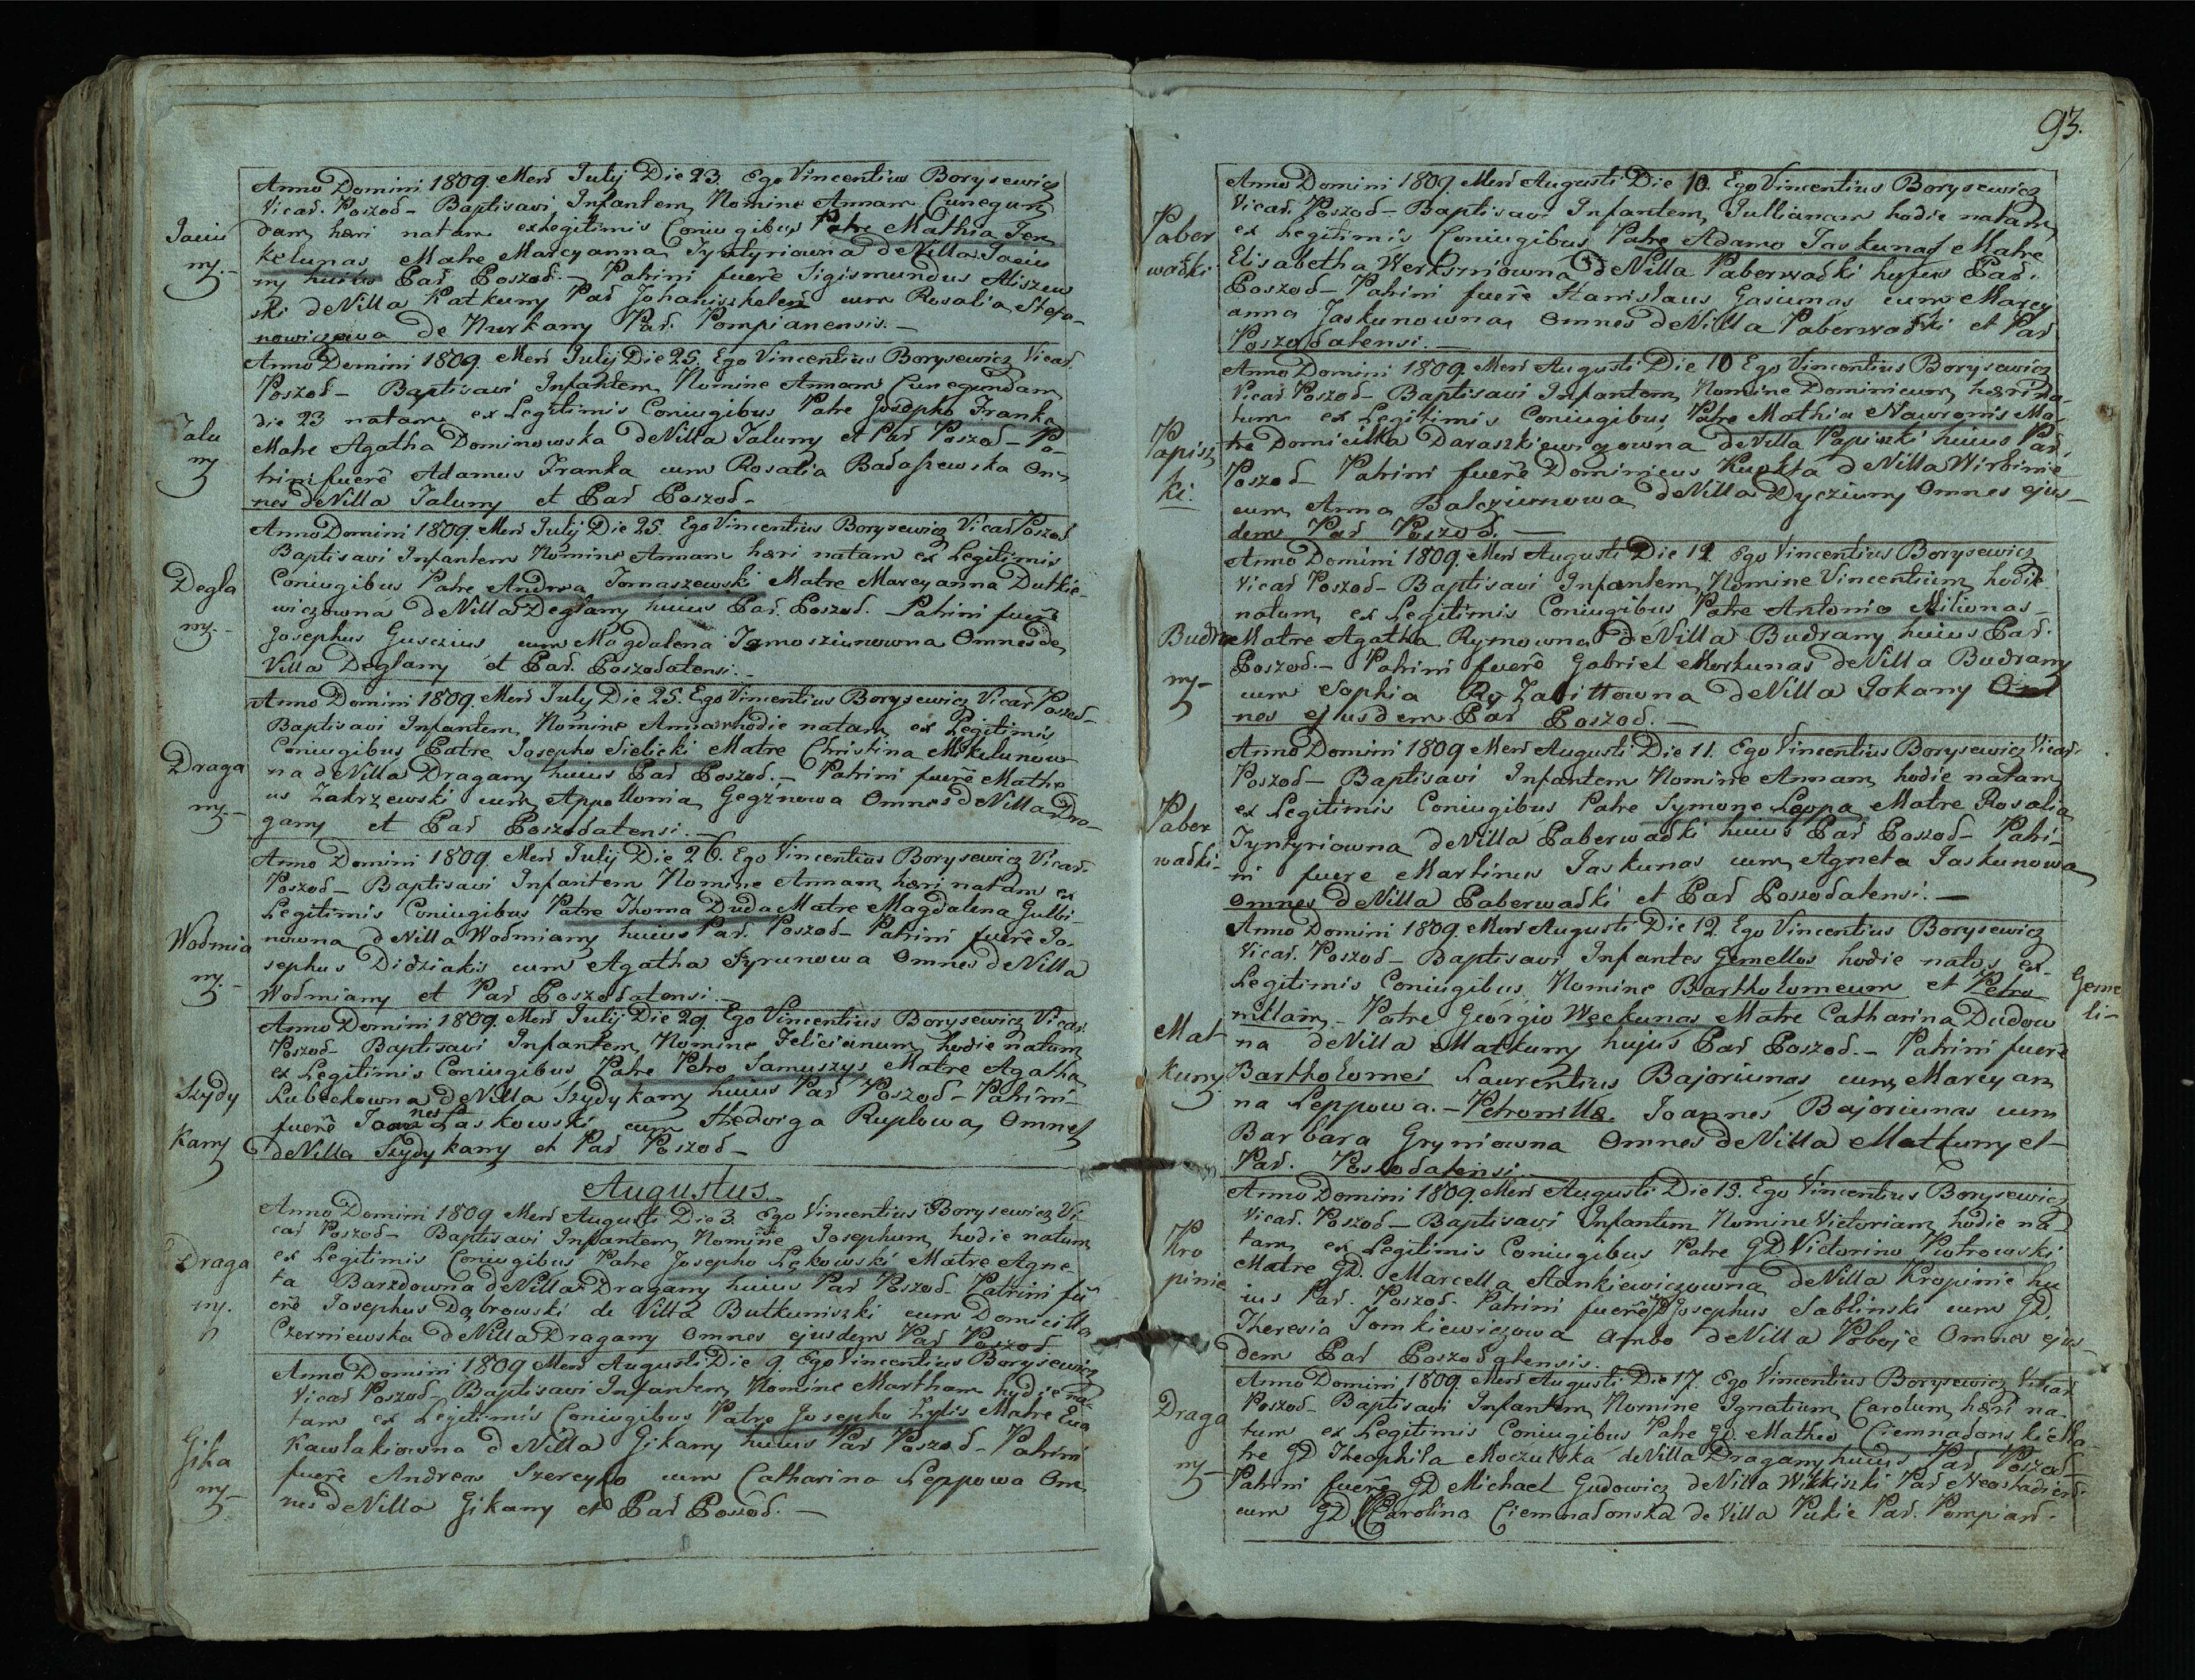 Jaciu
ny.-
Anno Domini 1809. Mens Julij Die 23. Ego Vincentius Borysewicz
Vicar. Poszod- Baptisavi Infantem Nomine Annam Cunegun
dam, hæri natam ex Legitimis Coniugibus Patre Mathia Jen
kelunas Matre Marcyanna Tyntyriowna de Villa Jaciu
ny huius Par Poszod.- Patrini fuerê Sigismundus Aliszew
ski de Villa Patkuny Par Johaniszkelens cum Rosalia Stefa-
nowiczowa de Nurkany Par. Pompianensis.-
Jalu
ny
Anno Domini 1809. Mens Julij Die 25. Ego Vincentius Borysewicz Vicar.
Poszod- Baptisavi Infantem Nomine Annam Cunegundam
die 23 natam ex Legitimis Coniugibus Patre Josepho Franka
Matre Agatha Dominowska de Villa Jaluny et Par Poszod- Pa-
trini fuerê Adamus Franka cum Rosalia Badaszewska Om
nes de Villa Jaluny et Par Poszod-
Degla
ny.-
Anno Domini 1809. Mens Julij Die 25. Ego Vincentius Borysewicz Vicar Poszod
Baptisavi Infantem Nomine Annam hæri natam ex Legitimis
Coniugibus Patre Andrea Tomaszewski Matre Marcyanna Dutkie-
wiczowna de Villa Deglany huius Par. Poszod. Patrini fuerê
Josephus Gusczius cum Magdalena Jamosziunowna Omnes de
Villa Deglany et Par. Poszodatensi.-
Draga
ny.-
Anno Domini 1809. Mens July Die 25. Ego Vincentius Borysewicz Vicar Poszod-
Baptisavi Infantem, Nomine Annam hodie natam ex Legitimis
Coniugibus Patre Josepho Sielicki Matre Christina Mikulunow
na de Villa Dragany huius Par Poszod.- Patrini fuerê Mathe
us Zakrzewski cum Appollonia Gegźnowa Omnes de Villa Dra-
gany et Par Poszodatensi.-
Wodmia
ny.-
Anno Domini 1809. Mens Julij Die 26. Ego Vincentius Borysewicz Vicar.
Poszod- Baptisavi Infantem Nomine Annam, hæri natam ex
Legitimis Coniugibus Patre Thoma Duda Matre Magdalena Gulbi-
nowna de Villa Wodmiany huius Par. Poszod- Patrini fuerê Jo-
sephus Didziakis cum Agatha Syrunowa Omnes de Villa
Wodmiany et Par Poszodatensi.-
Szydy
kany
Anno Domini 1809. Mens Julij Die 29. Ego Vincentius Borysewicz Vicar.
Poszod- Baptisavi Infantem, Nomine Felicianum, hodie natum
ex Legitimis Coniugibus Patre Petro Jamuszys Matre Agatha
Lubeckowna de Villa Szydykany huius Par Poszod- Patrini-
fuerê Joannes Laskowski cum Hedwiga Ruplowa, Omnes
de Villa Szydykany et Par Poszod-
Augustus.
Draga
ny.
Anno Domini 1809 Mens Augusti Die 3. Ego Vincentius Borysewicz Vi-
car Poszod- Baptisavi Infantem, Nomine Josephum, hodie natum
ex Legitimis Coniugibus Patre Josepho Lękowski Matre Agne-
ta Barzdowna de Villa Dragany huius Par Poszod- Patrini fu
erê Josephus Dąbrowski de Villa Butkuniszki cum Domicilla
Czerniewska de Villa Dragany Omnes ejusdem Par Poszod.
Gika
ny-
Anno Domini 1809 Mens Augusti Die 9. Ego Vincentius Borysewicz
Vicar Poszod- Baptisavi Infantem, Nomine Martham hodie na-
tam ex Legitimis Coniugibus Patre Josepho Zylis Matre Eva
Kawlakiowna de Villa Gikany huius Par Poszod- Patrini
fuerê Andreas Szereyko cum Catharina Leppowa Om
nes de Villa Gikany et Par Poszod.-
93.
Paber
wadki
Anno Domini 1809. Mens Augusti Die 10. Ego Vincentius Borysewicz
Vicar. Poszod- Baptisavi Infantem, Jullianam hodie natam,
ex Legitimis Coniugibus Patre Adamo Jaskunas Matre
Elisabetha Werkszniowna de Villa Paberwadki hujus Par.
Poszod- Patrini fuerê Stanislaus Gasiunas cum Marcy
anna Jaskunowna, Omnes de Villa Paberwadki et Par
Poszodatensi.-
Papisz
ki.
Anno Domini 1809. Mens Augusti Die 10 Ego Vincentius Borysewicz
Vicar Poszod- Baptisavi Infantem, Nomine Dominicum, hæri na-
tum ex Legitimis Coniugibus, Patre Mathia Nawronis Ma-
tre Domicilla Daraszkiewiczowna de Villa Papiszki huius Par.
Poszod- Patrini fuerê Dominicus Kupsta de Villa Wirbinie
cum Anna Balcziunowa de Villa Dycziuny Omnes ejus-
dem Par Poszod.-
Budra
ny-
Anno Domini 1809. Mens Augusti Die 12. Ego Vincentius Borysewicz
Vicar Poszod- Baptisavi Infantem, Nomine Vincentium, hodie
natum, ex Legitimis Coniugibus Patre Antonio Miliunas-
Matre Agatha Rymowna de Villa Budrany huius Par.
Poszod.- Patrini fuerê Gabriel Morkunas de Villa Budrany
cum Sophia Zabittowna de Villa Jokany Om
nes ejusdem Par Poszod.-
Paber
wadki-
Anno Domini 1809 Mens Augusti Die 11. Ego Vincentius Borysewicz Vicar.
Poszod- Baptisavi Infantem Nomine Annam, hodie natam
ex Legitimis Coniugibus Patre Symone Leppa Matre Rosalia
Tyntyriowna de Villa Paberwadki huius Par Poszod- Patri-
ni fuere Martinus Jaskunas cum, Agneta Jaskunowa
Omnes de Villa Paberwadki et Par Poszodatensi.-
Mat
kuny
Anno Domini 1809. Mens Augusti Die 12. Ego Vincentius Borysewicz
Vicar. Poszod- Baptisavi Infantes Gemellos hodie natos, ex-
Legitimis Coniugibus, Nomine Bartholomeum et Petro
nillam,- Patre Georgio Węckunas Matre Catharina Dudow
na de Villa Matkuny hujus Par Poszod.- Patrini fuerê
Bartholomei Laurentius Bajoriunas cum, Marcyan
na Leppowa.- Petronilla. Joannes Bajoriunas cum
Barbara Gryniowna Omnes de Villa Matkuny et
Par. Poszodatensi-
Geme
li-
Kro
pinie
Anno Domini 1809. Mens Augusti Die 13. Ego Vincentius Borysewicz
Vicar. Poszod- Baptisavi Infantem Nomine Victoriam, hodie na
tam, ex Legitimis Coniugibus Patre GD Victorino Piotrowski
Matre GD. Marcella Stankiewiczowna de Villa Kropinie hu
ius Par. Poszod- Patrini fuerê GD Josephus Sablinski cum GD.
Theresia Tomkiewiczowa Ambo de Villa Poboje Omnes ejus-
dem Par Poszodatensis.
Draga
ny-
Anno Domini 1809. Mens Augusti Die 17. Ego Vincentius Borysewicz Vicar
Poszod- Baptisavi Infantem, Nomine Ignatium, Carolum, hæri na-
tum ex Legitimis Coniugibus Patre GD. Matheo Ciemnadonski Ma-
tre GD Theophila Moczulska de Villa Dragany huius Par Poszod-
Patrini fuerê GD Michael Gudowicz de Villa Wikkiszki Par
cum GD Carolina Ciemnadonska de Villa Pukie Par. Pompian.